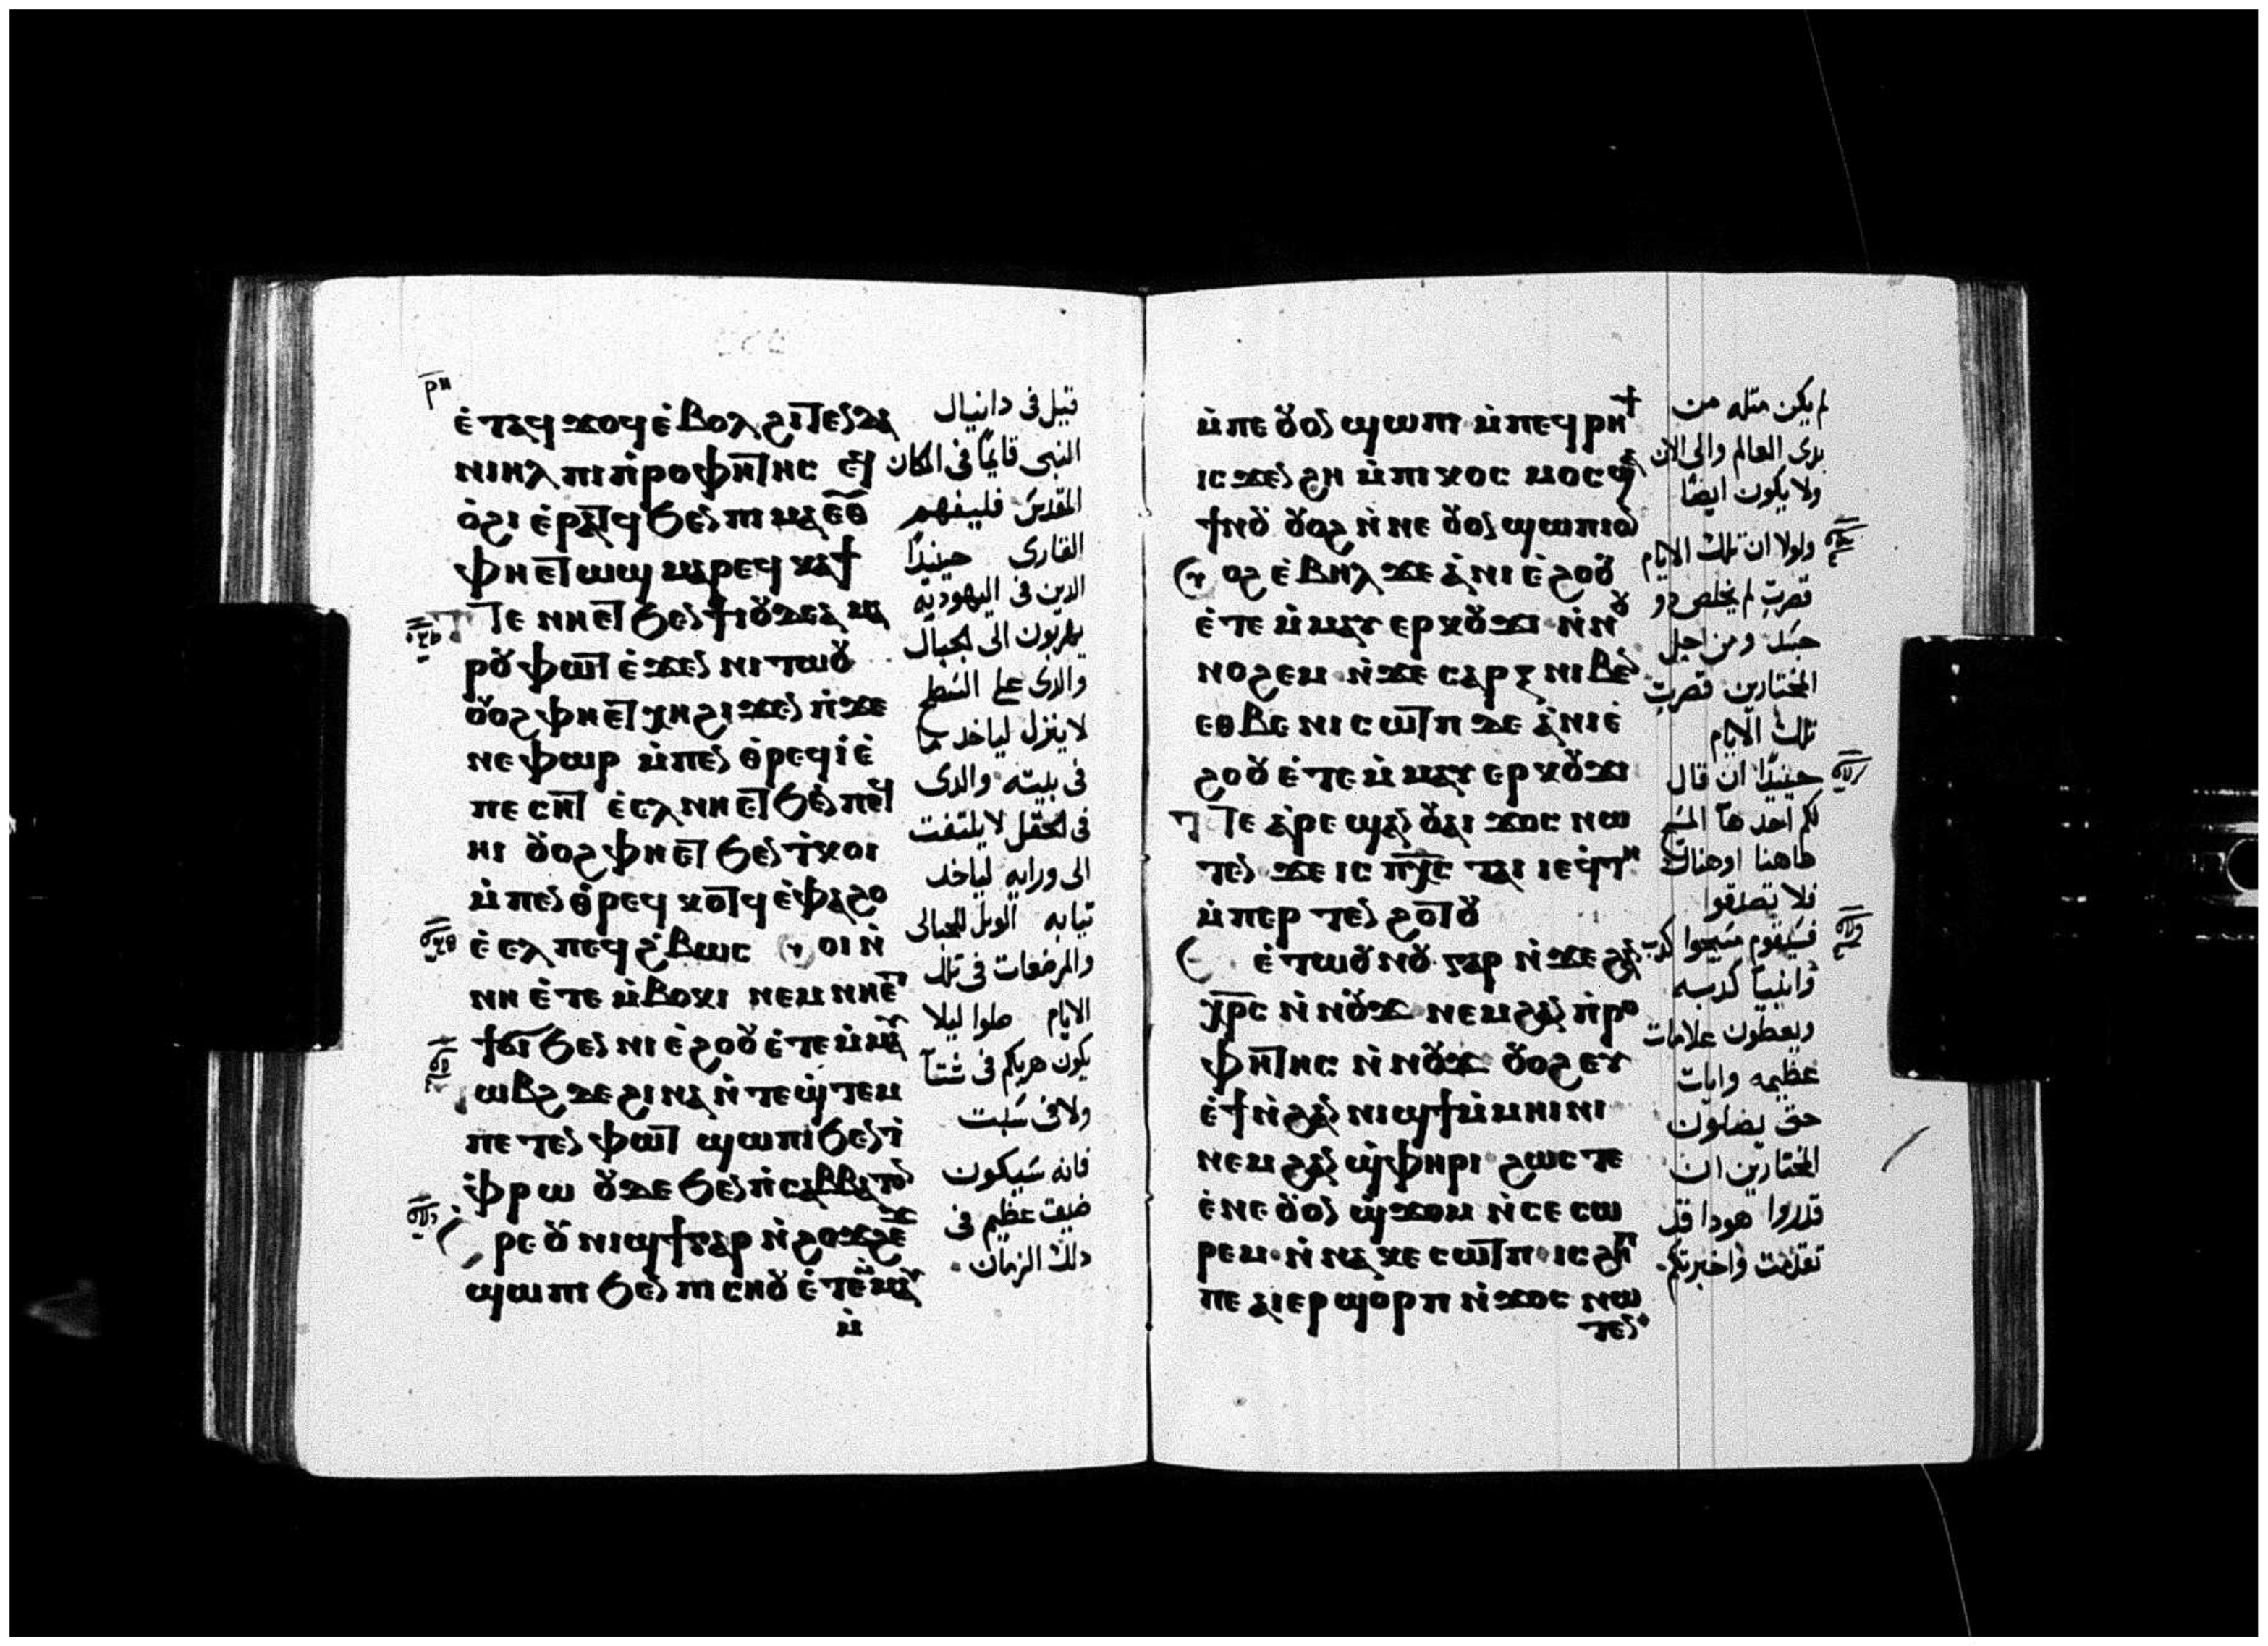 ⲣⲏ
ⲉ̀ⲧⲁϥϫⲟϥ ⲉ̀ⲃⲟⲗ ϩⲓⲧⲉⲛ ⲇⲁ
ⲛⲓⲏⲗ ⲡⲓⲡ̀ⲣⲟⲫⲏⲧⲏⲥ ⲉϥ
ⲟ̀ϩⲓ ⲉ̀ⲣⲁⲧϥ ϧⲉⲛ ⲡⲓⲙⲁ ⲉ̅ⲑ̅
ⲫⲏⲉⲧⲱϣ ⲙⲁⲣⲉϥⲕⲁϯ
ⲧⲉ ⲛⲏⲉⲧϧⲉⲛ ϯⲓⲟⲩⲇⲉⲁ ⲙⲁ
ⲣⲟⲩⲫⲱⲧ ⲉ̀ϫⲉⲛ ⲛⲓⲧⲱⲟⲩ
ⲟⲩⲟϩ ⲫⲏⲉⲧⲭⲏ ϩⲓϫⲉⲛ ⲡ̀ϫⲉ
ⲛⲉⲫⲱⲣ ⲙ̀ⲡⲉⲛⲑ̀ⲣⲉϥⲓ̀ ⲉ̀
ⲡⲉⲥⲏⲧ ⲉ̀ⲉⲗ ⲛⲏⲉⲧϧⲉⲛ ⲡⲉϥ
ⲏⲓ ⲟⲩⲟϩ ⲫⲏⲉⲧϧⲉⲛ ⲧ̀ⲕⲟⲓ
ⲙ̀ⲡⲉⲛⲑ̀ⲣⲉϥⲕⲟⲧϥ ⲉ̀ⲫⲁϩⲟ
ⲉ̀ⲉⲗ ⲡⲉϥϩ̀ⲃⲱⲥ ⲟⲩⲟⲓ ⲛ̀
ⲛⲏ ⲉ̀ⲧⲉ ⲙ̀ⲃⲟⲕⲓ ⲛⲉⲙ ⲛⲏⲉⲧ
ϯϭⲓ ϧⲉⲛ ⲛⲓⲉ̀ϩⲟⲟⲩ ⲉ̀ⲧⲉⲙ̀ⲙⲁⲩ
ⲱⲃϩ ⲇⲉ ϩⲓⲛⲁ ⲛ̀ⲧⲉϣ̀ⲧⲉⲙ
ⲡⲉⲧⲉⲛⲫⲱⲧ ϣⲱⲡⲓ ϧⲉⲛ ⲧ̀
ⲫ̀ⲣⲱ ⲟⲩⲇⲉ ϧⲉⲛ ⲡ̀ⲥⲁⲃⲃⲁⲧⲟⲛ
ⲣⲉ ⲟⲩⲛⲓϣϯ ⲅⲁⲣ ⲛ̀ϩⲟϫϩⲉϫ
ϣⲱⲡⲓ ϧⲉⲛ ⲡⲓⲥⲏⲟⲩ ⲉ̀ⲧⲉⲙ̀ⲙⲁⲩ
ⲙ̀
قيل فى دانيال
النبى قايمًا فى المكان
المقدس فليفهم
القارى حينيدًا
الدين فى اليهوديه
يهربون الى الجبال
والدى على السطح
لا ينزل لياخد ما
فى بيته والدى
فى الحقل لا يلتفت
الى ورايه لياخد
تيابه الويل للحبالى
والمرضعات فى تلك
الايام صلوا ليلا
يكون هربكم فى شتآ
ولا فى سبت
فانه سيكون
ضيق عظيم فى
دلك الزمان
ⲙ̀ⲡⲉⲟⲩⲟⲛ ϣⲱⲡⲓ ⲙ̀ⲡⲉϥⲣⲏϯ
ⲓⲥϫⲉⲛ ϩⲏ ⲙ̀ⲡⲓⲕⲟⲥⲙⲟⲥ ϣⲁ
ϯⲛⲟⲩ ⲟⲩⲟϩ ⲛ̀ⲛⲉⲟⲩⲟⲛ ϣⲱⲡⲓ ⲟⲛ
ⲟⲩⲟϩ ⲉ̀ⲃⲏⲗ ϫⲉ ⲁ̀ⲛⲓⲉ̀ϩⲟⲟⲩ
ⲉ̀ⲧⲉⲙ̀ⲙⲁⲩ ⲉⲣⲕⲟⲩϫⲓ ⲛ̀ⲛⲟⲩ
ⲛⲟϩⲉⲙ ⲛ̀ϫⲉ ⲥⲁⲣⲝ ⲛⲓⲃⲉⲛ
ⲉⲑⲃⲉ ⲛⲓⲥⲱⲧⲡ ⲇⲉ ⲁ̀ⲛⲓⲉ̀
ϩⲟⲟⲩ ⲉ̀ⲧⲉⲙ̀ⲙⲁⲩ ⲉⲣⲕⲟⲩϫⲓ
ⲧⲉ ⲁⲣⲉϣⲁⲛ ⲟⲩⲁⲓ ϫⲟⲥ ⲛⲱ
ⲧⲉⲛ ϫⲉ ⲓⲥ ⲡⲭ̅ⲥ̅ ⲧⲁⲓ ⲓⲉ ϥ̀ⲧⲏ
ⲙ̀ⲡⲉⲣⲧⲉⲛϩⲟⲧⲟⲩ
ⲉ̀ⲧⲱⲟⲩⲛⲟⲩ ⲅⲁⲣ ⲛ̀ϫⲉ ϩⲁⲛ
ⲭ̅ⲣ̅ⲥ̅ ⲛ̀ⲛⲟⲩϫ ⲛⲉⲙ ϩⲁⲛⲡ̀ⲣⲟ
ⲫⲏⲧⲏⲥ ⲛ̀ⲛⲟⲩϫ ⲟⲩⲟϩ ⲉⲩ
ⲉ̀ϯ ⲛ̀ϩⲁⲛⲛⲓϣϯ ⲙ̀ⲙⲏⲓⲛⲓ
ⲛⲉⲙ ϩⲁⲛϣ̀ⲫⲏⲣⲓ ϩⲱⲥⲧⲉ
ⲉ̀ⲛⲉⲟⲩⲟⲛ ϣ̀ϫⲟⲙ ⲛ̀ⲥⲉⲥⲱ
ⲣⲉⲙ ⲛ̀ⲛⲁⲕⲉⲥⲱⲧⲡ ⲓⲥϩⲏⲡ
ⲡⲉ ⲁⲓⲉⲣϣⲟⲣⲡ ⲛ̀ϫⲟⲥ ⲛⲱ
ⲧⲉⲛ
لم يكن مثله من
بدى العالم والى الان
ولا يكون ايضًا
ولولا ان تلك الايام
قصرت لم يخلص دو
جسد ومن اجل
المختارين قصرت
تلك الايام
حينيدًا ان قال
لكم احد هآ المسيح
هاهنا او هناك
فلا تصدقوا
فسيقوم مسيحوا كدب
وانبيآ كدبه
ويعطون علامات
عظيمه وايات
حتى يضلون
المختارين ان
قدروا هودا قد
تقدمت واخبرتكم